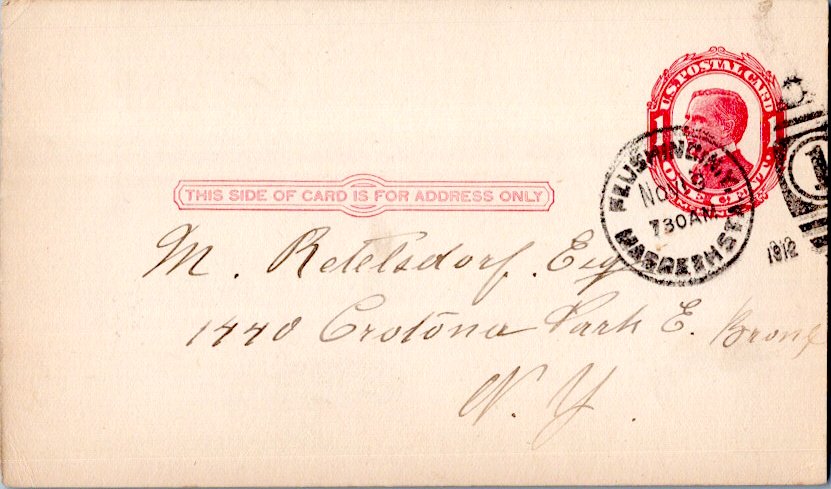 U.S. POSTAL CARD
1 1
ONE CENT
FLUSHING, N.Y.
NOV
730AM
STA
1
1912
THIS SIDE OF CARD IS FOR ADDRESS ONLY
M. Retelsdorf. Esq
1440 Crotona Park E. Bronx
N. Y.